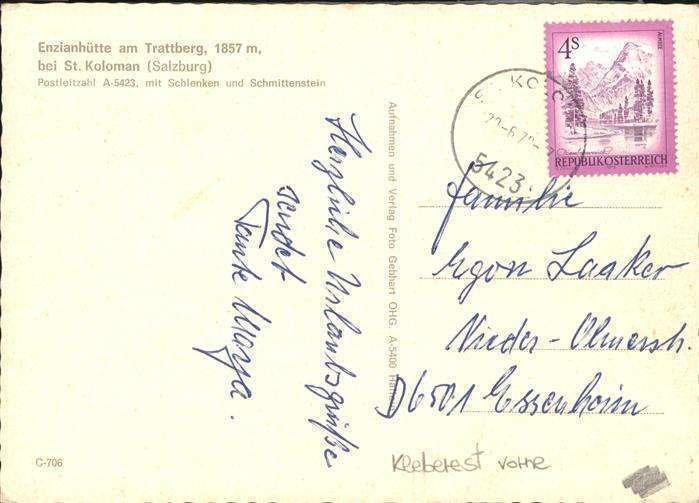 Enzianhütte am Trattberg, 1857 m,
bei St. Koloman (Salzburg)
Postleitzahl A-5423, mit Schlenken und Schmittenstein
Herzliche Urlaubsgrüße
sendet
Tante Marga.
Aufnahmen und Verlag Foto Gebhart OHG. A-5400
4 S
ALMSEE
REPUBLIK ÖSTERREICH
5423
Familie
Egon Laaker
Nieder-Olmerstr.
D6501 Essenheim
Kleberest vorne
C-706